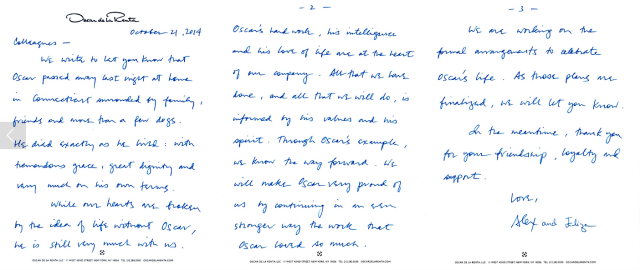 Oscar de la Renta
October 21, 2014
Colleagues —
We write to let you know that
Oscar passed away last night at home
in Connecticut surrounded by family,
friends and more than a few dogs.
He died exactly as he lived: with
tremendous grace, great dignity and
very much on his own terms.
While our hearts are broken
by the idea of life without Oscar,
he is still very much with us.
OSCAR DE LA RENTA, LLC 11 WEST 42ND STREET NEW YORK, NY 10036
- 2 -
Oscar's hard work, his intelligence
and his love of life are at the heart
of our company. All that we have
done, and all that we will do, is
informed by his values and his
spirit. Through Oscar's example,
we know the way forward. We
will make Oscar very proud of
us by continuing in an even
stronger way the work that
Oscar loved so much.
OSCAR DE LA RENTA, LLC 11 WEST 42ND STREET NEW YORK, NY 10036
- 3 -
We are working on the
formal arrangements to celebrate
Oscar's life. As those plans are
finalized, we will let you know.
In the meantime, thank you
for your friendship, loyalty and
support.
Love,
Alex and Eliza
OSCAR DE LA RENTA, LLC 11 WEST 42ND STREET NEW YORK, NY 10036